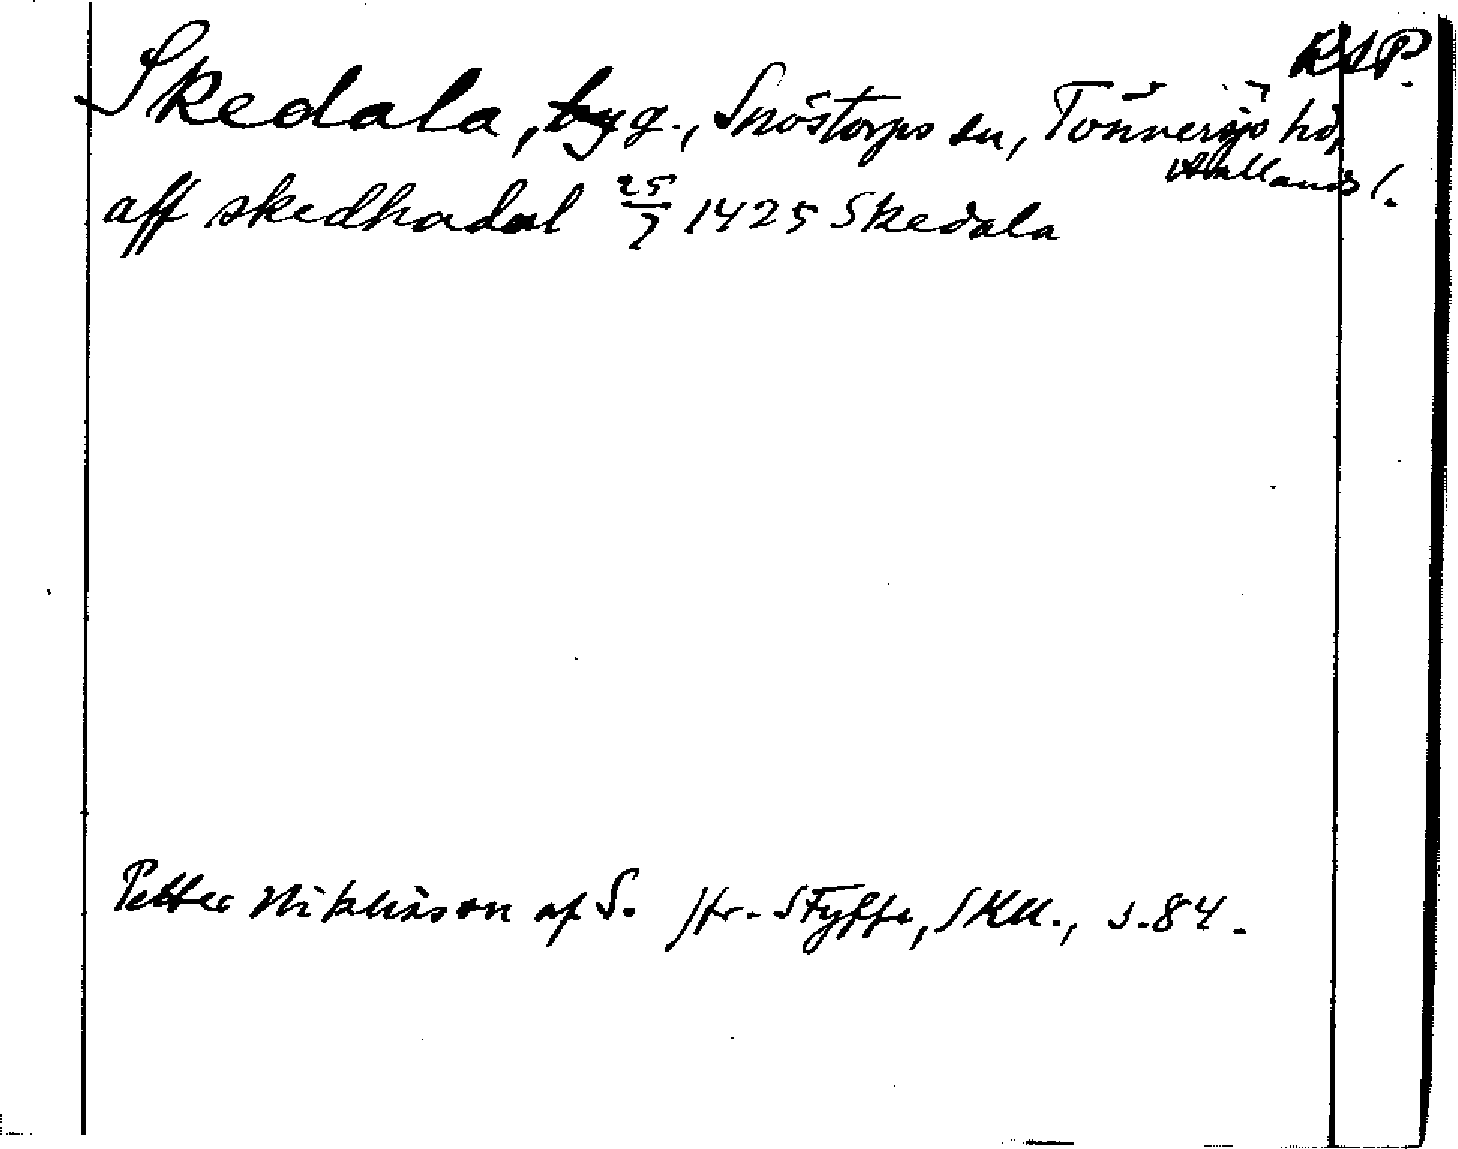 RAP.
Skedala, byg., Snöstorps sn, Tönnersjö hd,
Hallands l.
aff skedhadal 25/7 1425 Skedala
Petter Niklisson af S. Jfr. Styffe, SKU., s. 84.